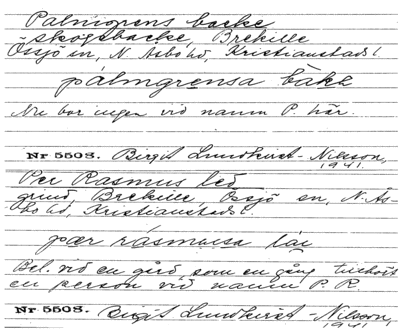 Palmgrens backe
skogsbacke, Brekille
Össjö sn, N. Åsbo hd, Kristianstads l.
pálmgrensa bakk
Nu bor ingen vid namn P. här.
Nr 5503. Birgit Lundkvist-Nilsson,
1941.
Per Rasmus led
grind, Brekille, Össjö sn, N. Ås-
bo hd, Kristianstads l.
pær rásmusa
Bel. vid en gård, som en gång tillhört
en person vid namn P. R.
Nr 5503. Birgit Lundkvist-Nilsson,
1941.